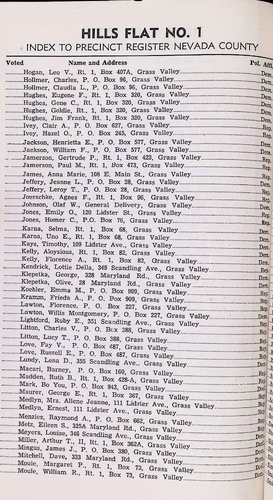 HILLS FLAT NO. 1
INDEX TO PRECINCT REGISTER NEVADA COUNTY
Voted Name and Address Pol. Affl.
Hogan, Leo V., Rt. 1, Box 407A, Grass Valley Dem.
Hollmer, Charles, P. O. Box 96, Grass Valley
Hollmer, Claudia L., P. O. Box 96, Grass Valley
Hughes, Eugene F., Rt. 1, Box 320, Grass Valley
Hughes, Gene C., Rt. 1, Box 320, Grass Valley
Hughes, Goldie, Rt., 1, Box 320, Grass Valley
Hughes, Jim Frank, Rt. 1, Box 320, Grass Valley
Ivey, Clair A., P. O. Box 627, Grass Valley
Ivey, Hazel O., P. O. Box 245, Grass Valley
Jackson, Henrietta E., P. O. Box 577, Grass Valley
Jackson, William F., P. O. Box 577, Grass Valley
Jamerson, Gertrude P., Rt. 1, Box 423, Grass Valley
Jamerson, Paul M., Rt. 1, Box 473, Grass Valley
James, Anna Marie, 108 E. Main St., Grass Valley
Jeffery, Jeanne L., P. O. Box 28, Grass Valley
Jeffery, Leroy T., P. O. Box 28, Grass Valley
Joerschke, Agnes F., Rt. 1, Box 96, Grass Valley
Johnson, Olaf W., General Delivery, Grass Valley
Jones, Emily O., 120 Lidster St., Grass Valley
Jones, Homer C., P.O. Box 76, Grass Valley
Karna, Selma, Rt. 1, Box 68, Grass Valley
Karna, Uno E., Rt. 1, Box 68, Grass Valley
Kays, Timothy, 109 Lidster Ave., Grass Valley
Kelly, Aloysious, Rt. 1, Box 82, Grass Valley
Kelly, Florence A., Rt. 1, Box 82, Grass Valley
Kendrick, Lottie Della, 349 Scandling Ave., Grass Valley
Klepetka, George, 328 Maryland Rd., Grass Valley
Klepetka, Olive, 28 Maryland Rd., Grass Valley
Koehler, Emma M., P. O. Box 909, Grass Valley
Kramm, Frieda A., P. O. Box 909, Grass Valley
Lawton, Florence, P. O. Box 227, Grass Valley
Lawton, Willis Montgomery, P. O. Box 227, Grass Valley
Lightford, Ruby E., 351 Scandling Ave., Grass Valley
Litton, Charles V., P. O. Box 388, Grass Valley
Litton, Lucy T., P. O. Box 388, Grass Valley
Love, Fay V., P. O. Box 487, Grass Valley
Love, Russell E., P. O. Box 487, Grass Valley
Lundy, Lena D., 355 Scandling Ave., Grass Valley
Macari, Barney, P. O. Box 160, Grass Valley
Madden, Ruth B., Rt. 1, Box 428-A, Grass Valley
Mark, Bo You, P. O. Box 943, Grass Valley
Maurer, George E., Rt. 1, Box 367, Grass Valley
Medlyn, Mrs. Allene Jeanne, 111 Lidster Ave., Grass Valley
Medlyn, Ernest, 111 Lidster Ave., Grass Valley
Menzies, Raymond A., P. O. Box 662, Grass Valley
Metz, Eileen S., 325A Maryland Rd., Grass Valley
Meyers, Louise, 346 Scandling Ave., Grass Valley
Miller, Arthur T., II, Rt. 1, Box 362A, Grass Valley
Mingus, James J., P. O. Box 380, Grass Valley
Mitchell, Dave, 323 Maryland Rd., Grass Valley
Moule, Margaret P., Rt. 1, Box 73, Grass Valley
Moule, William R., Rt. 1, Box 73, Grass Valley